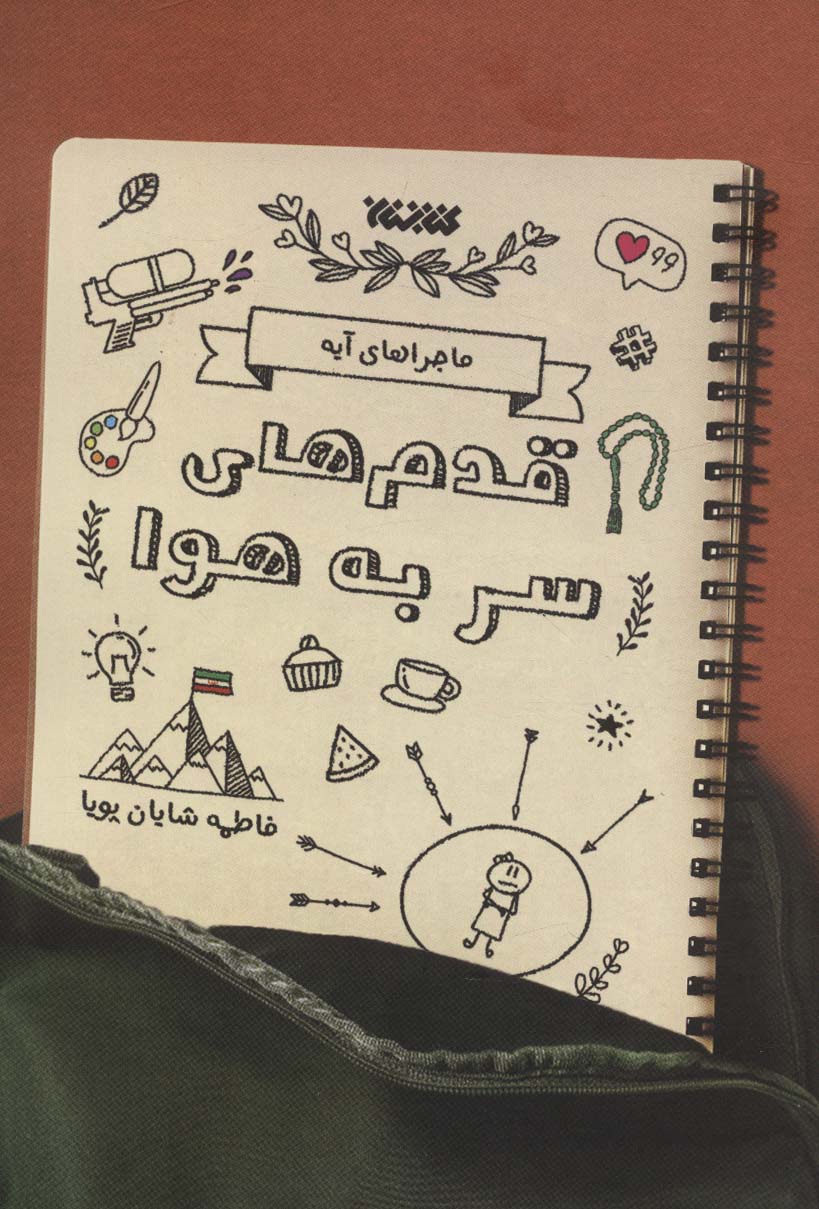 کتابستان
99
ماجراهای آیه
#
قدم‌های
سر به هوا
فاطمه شایان پویا